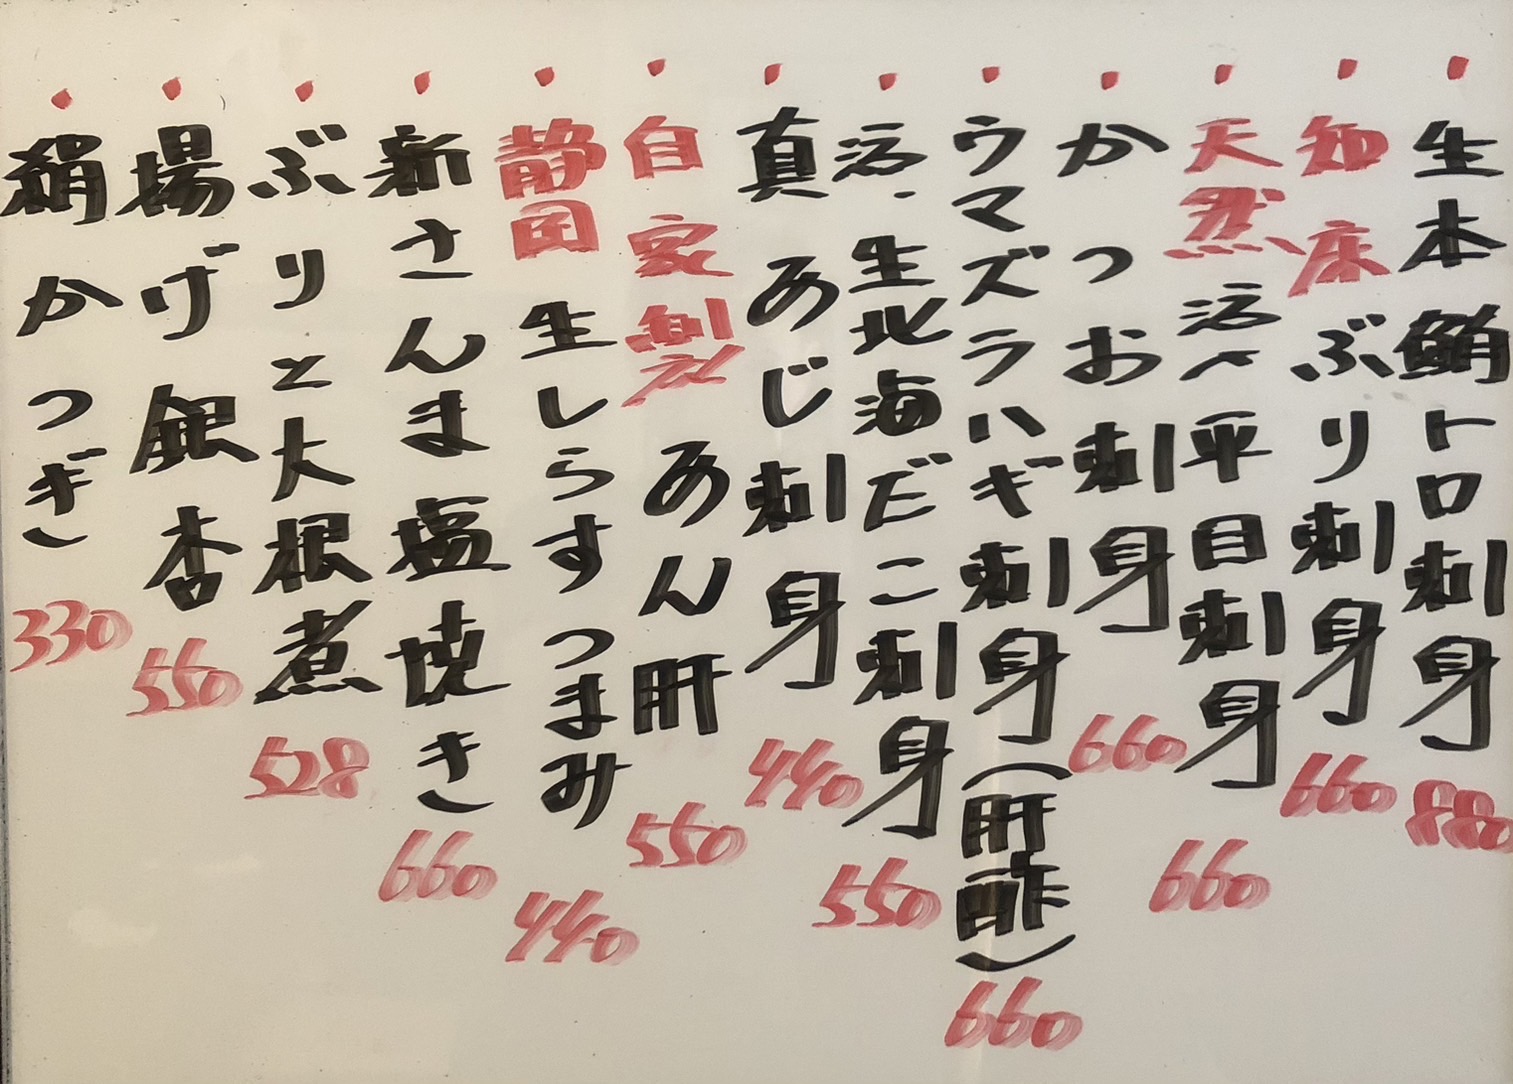 ・生本鮪トロ刺身 880
・知床ぶり刺身 660
・天然活〆平目刺身 660
・かつお刺身 660
・ウマズラハギ刺身(肝酢) 660
・活・生北海だこ刺身 550
・真あじ刺身 440
・自家製あん肝 550
・静岡生しらすつまみ 440
・新さんま塩焼き 660
・ぶりと大根煮 528
・揚げ銀杏 550
・絹かつぎ 330